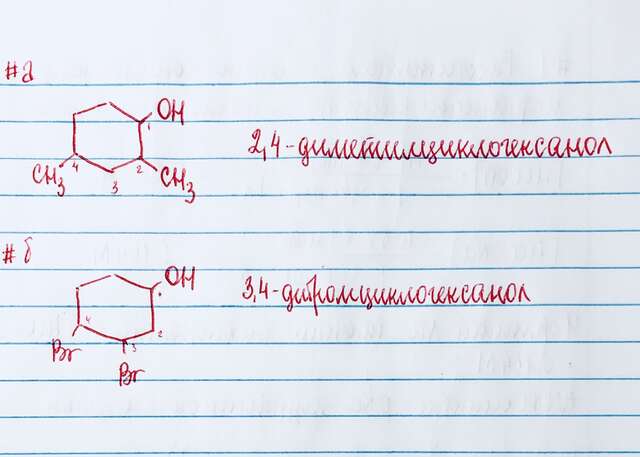 #а
OH
1
2,4-диметилциклогексанол
4
2
CH3
3
CH3
#б
OH
3,4-дибромциклогексанол
4
2
3
Br
Br